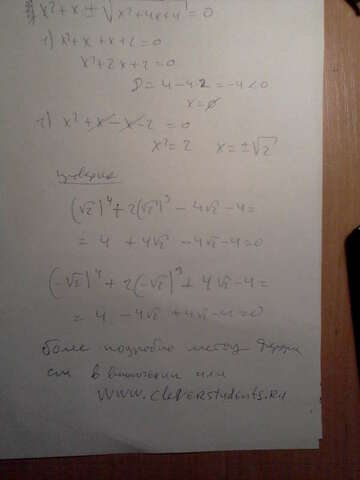 x² + x ± √(x²+4x+4) = 0
1) x² + x + x + 2 = 0
x² + 2x + 2 = 0
D = 4 - 4·2 = -4 < 0
x = ∅
2) x² + x - x - 2 = 0
x² = 2 x = ±√2
(√2)⁴ + 2(√2)³ - 4√2 - 4 =
= 4 + 4√2 - 4√2 - 4 = 0
(-√2)⁴ + 2(-√2)³ + 4√2 - 4 =
= 4 - 4√2 + 4√2 - 4 = 0
более подробно метод
см в вложении или
www.cleverstudents.ru